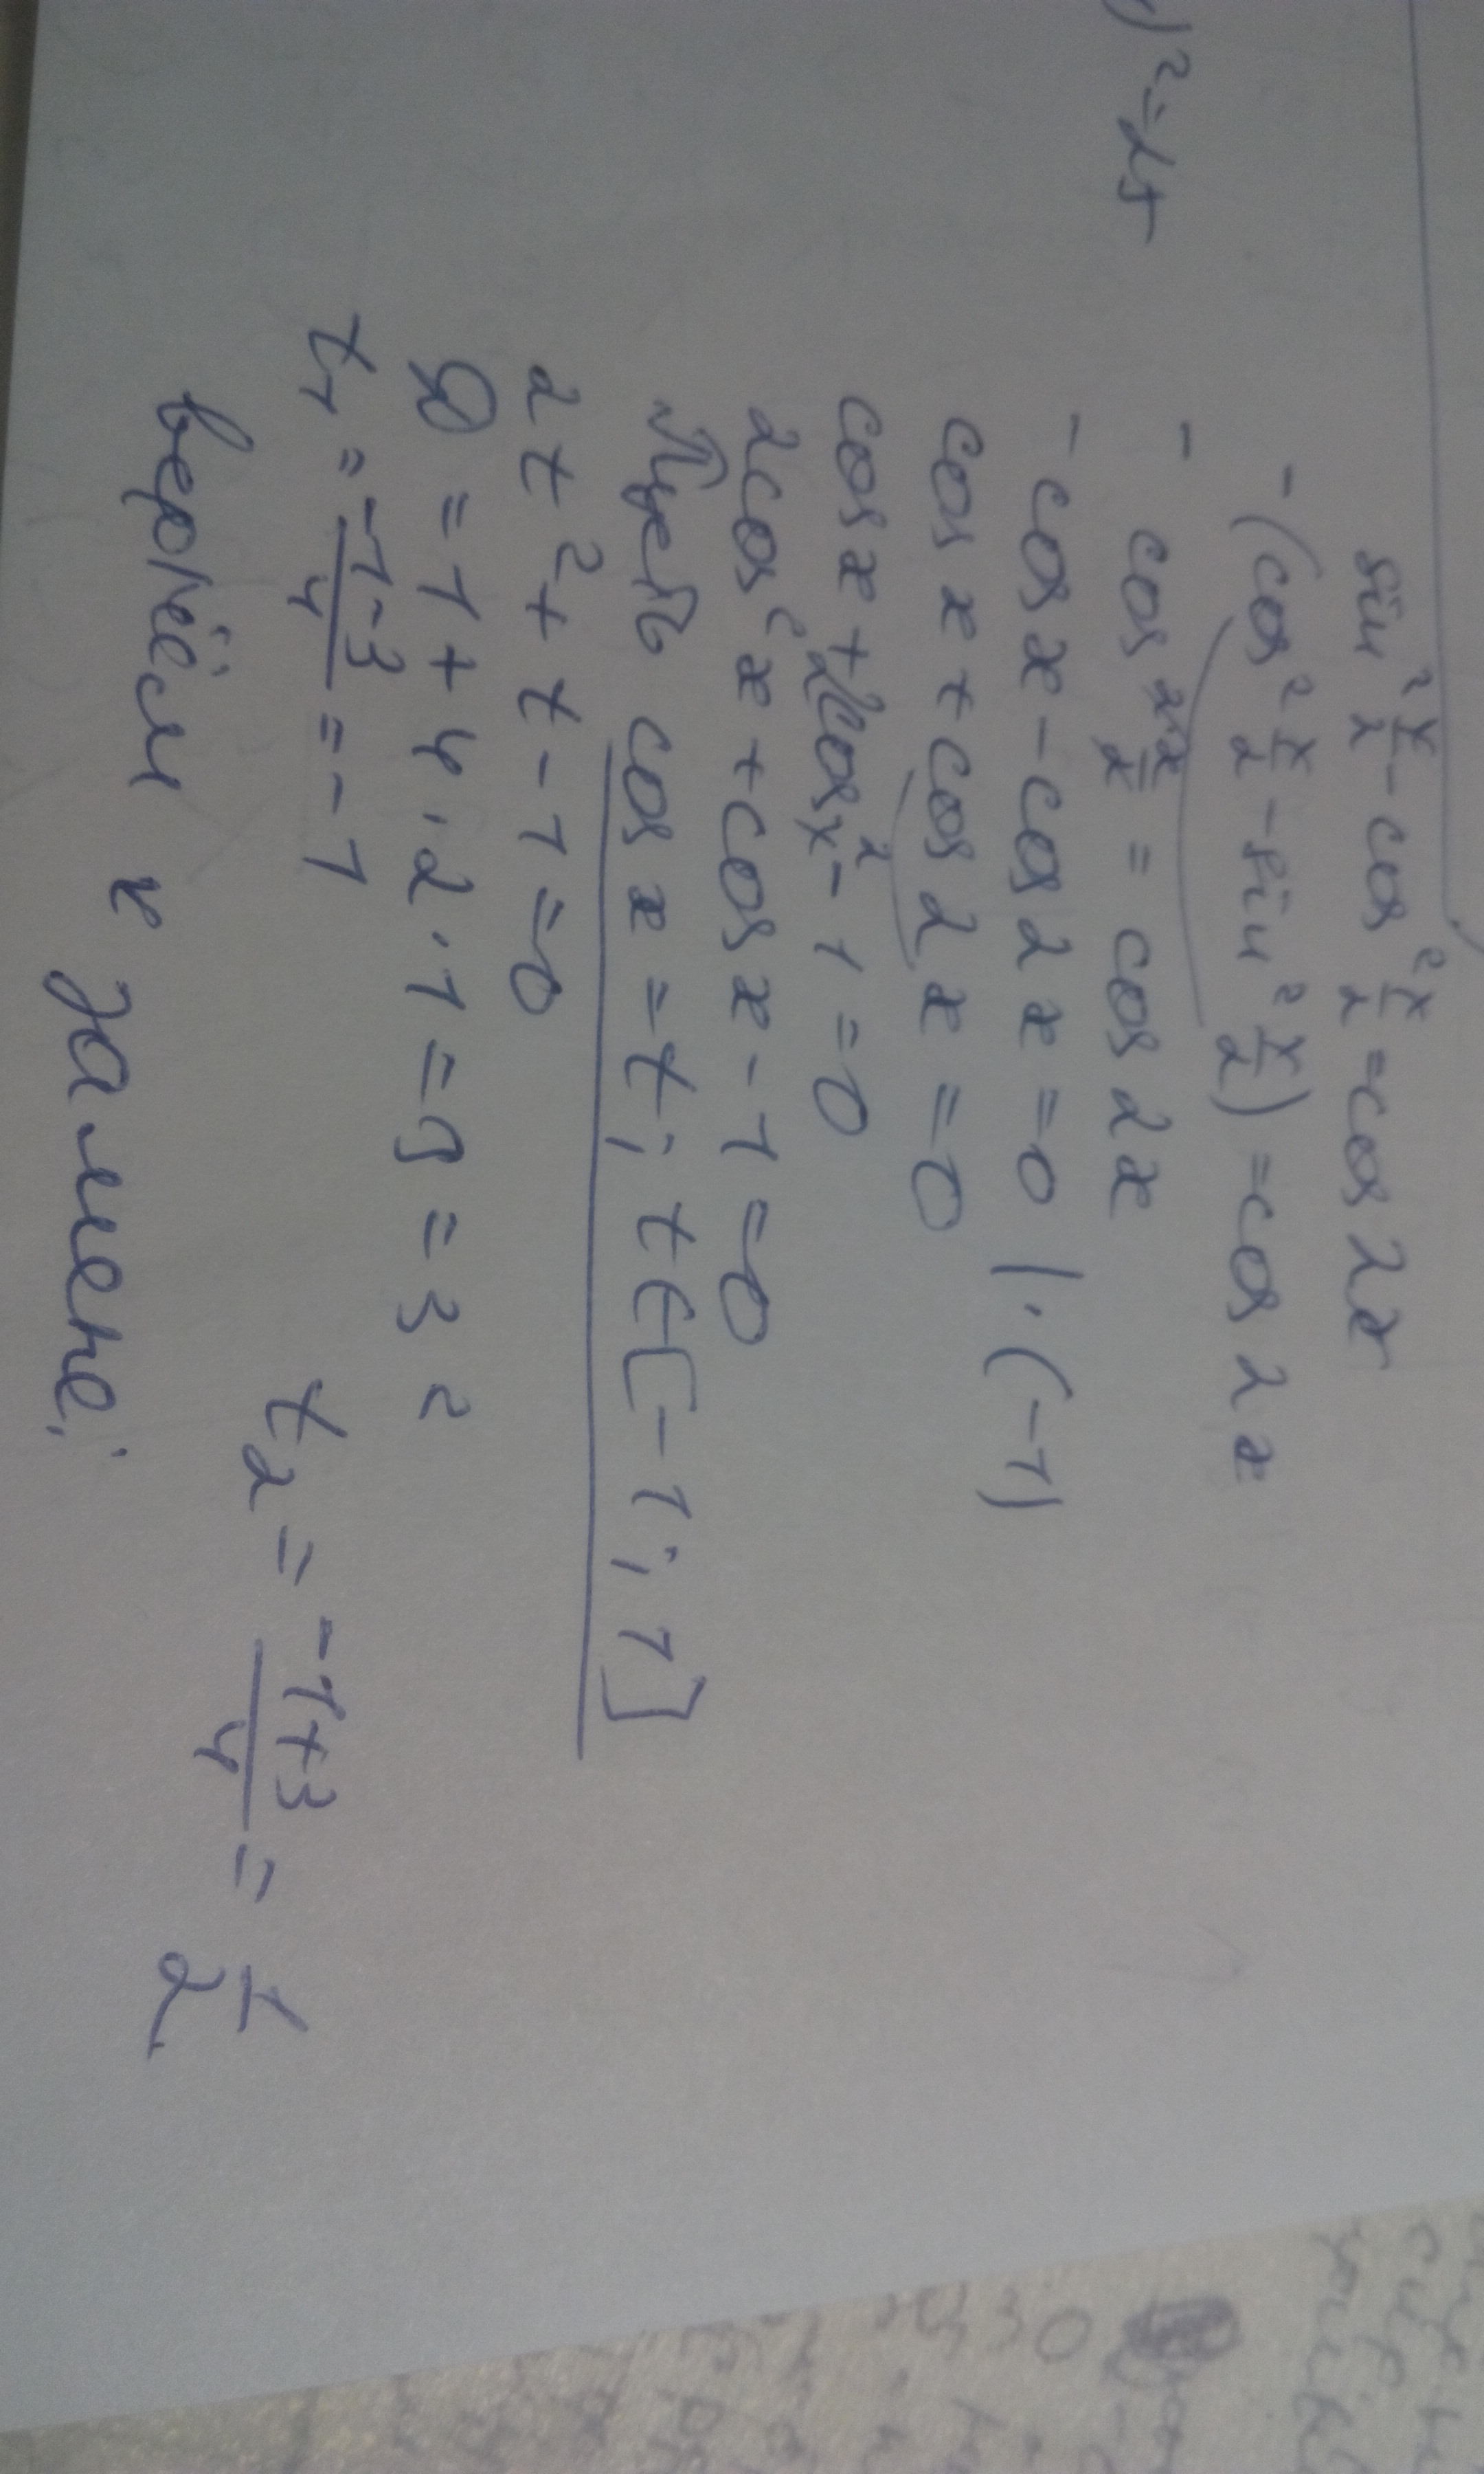 )² = 25
sin² x/2 - cos² x/2 = cos 2x
- (cos² x/2 - sin² x/2) = cos 2x
- cos 2x/2 = cos 2x
- cos x - cos 2x = 0 | · (-1)
cos x + cos 2x = 0
cos x + 2cos² x - 1 = 0
2cos² x + cos x - 1 = 0
Пусть cos x = t; t ∈ [-1; 1]
2t² + t - 1 = 0
D = 1 + 4 · 2 · 1 = 9 = 3²
t₁ = (-1-3)/4 = -1 t₂ = (-1+3)/4 = 1/2
вернёмся к замене: